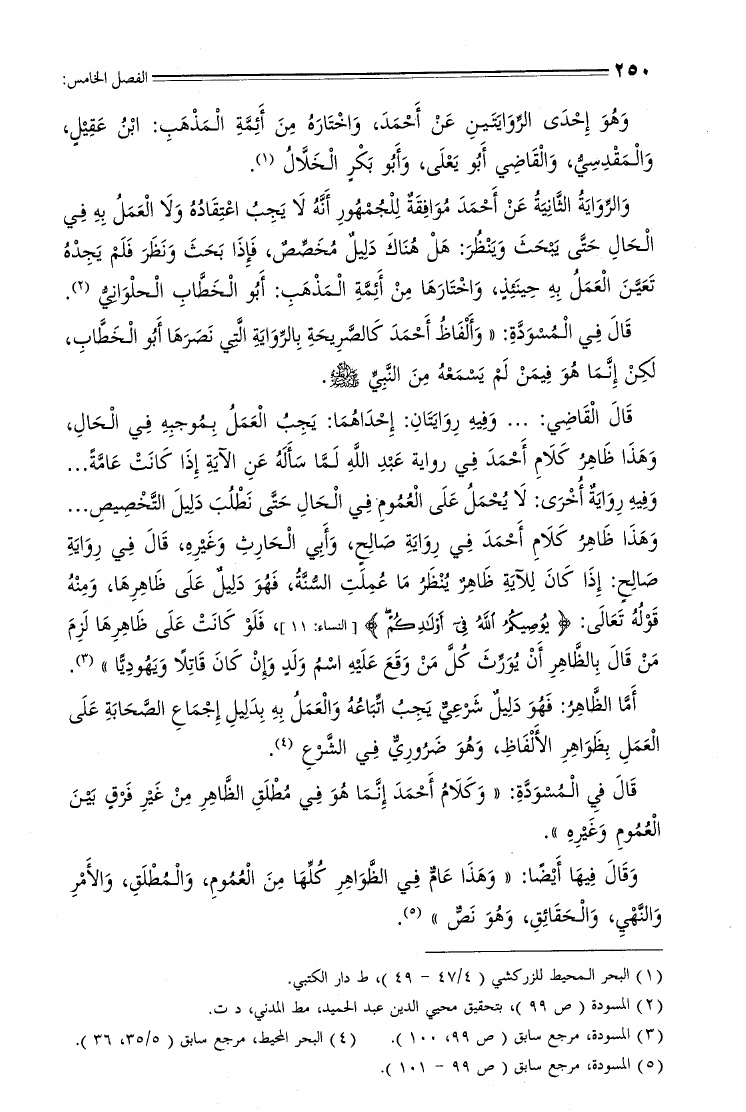 ٢٥٠ الفصل الخامس:
وَهُوَ إِحْدَى الرِّوَايَتَينِ عَنْ أَحْمَدَ، وَاخْتَارَهُ مِنَ أَئِمَّةِ الْمَذْهَبِ: ابْنُ عَقِيْلٍ،
وَالْمَقْدِسِيُّ، وَالْقَاضِي أَبُو يَعْلَى، وَأَبُو بَكْرٍ الْخَلَّالُ (١).
وَالرِّوَايَةُ الثَّانِيَةُ عَنْ أَحْمَدَ مُوَافِقَةٌ لِلْجُمْهُورِ أَنَّهُ لَا يَجِبُ اعْتِقَادُهُ وَلَا الْعَمَلُ بِهِ فِي
الْحَالِ حَتَّى يَبْحَثَ وَيَنْظُرَ: هَلْ هُنَاكَ دَلِيلٌ مُخَصِّصٌ، فَإِذَا بَحَثَ وَنَظَرَ فَلَمْ يَجِدْهُ
تَعَيَّنَ الْعَمَلُ بِهِ حِينَئِذٍ، وَاخْتَارَهَا مِنْ أَئِمَّةِ الْمَذْهَبِ: أَبُو الْخَطَّابِ الْحلْوَانِيُّ (٢).
قَالَ فِي الْمُسْوَدَّةِ: « وَأَلْفَاظُ أَحْمَدَ كَالصَّرِيحَةِ بِالرِّوَايَةِ الَّتِي نَصَرَهَا أَبُو الْخَطَّابِ،
لَكِنْ إِنَّمَا هُوَ فِيمَنْ لَمْ يَسْمَعْهُ مِنَ النَّبِيِّ ﷺ.
قَالَ الْقَاضِي: ... وَفِيهِ رِوَايَتَانِ: إِحْدَاهُمَا: يَجِبُ الْعَمَلُ بِمُوجبِهِ فِي الْحَالِ،
وَهَذَا ظَاهِرُ كَلَامِ أَحْمَدَ فِي رواية عَبْدِ اللَّهِ لَمَّا سَأَلَهُ عَنِ الآيَةِ إِذَا كَانَتْ عَامَّةً...
وَفِيهِ رِوَايَةٌ أُخْرَى: لَا يُحْمَلُ عَلَى الْعُمُومِ فِي الْحَالِ حَتَّى نَطْلُبَ دَلِيلَ التَّخْصِيصِ...
وَهَذَا ظَاهِرُ كَلَامِ أَحْمَدَ فِي رِوَايَةِ صَالِحٍ، وَأَبِي الْحَارِثِ وَغَيْرِهِ، قَالَ فِي رِوَايَةِ
صَالِحٍ: إِذَا كَانَ لِلآيَةِ ظَاهِرٌ يُنْظَرُ مَا عُمِلَتِ السُّنَّةُ، فَهُوَ دَلِيلٌ عَلَى ظَاهِرِهَا، وَمِنْهُ
قَوْلُهُ تَعَالَى: ﴿ يُوصِيكُمُ اللَّهُ فِي أَوْلَادِكُمْ ﴾ [ النساء: ١١ ]، فَلَوْ كَانَتْ عَلَى ظَاهِرِهَا لَزِمَ
مَنْ قَالَ بِالظَّاهِرِ أَنْ يُوَرِّثَ كُلَّ مَنْ وَقَعَ عَلَيْهِ اسْمُ وَلَدٍ وَإِنْ كَانَ قَاتِلًا وَيَهُودِيًّا » (٣).
أَمَّا الظَّاهِرُ: فَهُوَ دَلِيلٌ شَرْعِيٌّ يَجِبُ اتِّبَاعُهُ وَالْعَمَلُ بِهِ بِدَلِيلِ إِجْمَاعِ الصَّحَابَةِ عَلَى
الْعَمَلِ بِظَوَاهِرِ الأَلْفَاظِ، وَهُوَ ضَرُورِيٌّ فِي الشَّرْعِ (٤).
قَالَ فِي الْمُسْوَدَّةِ: « وَكَلَامُ أَحْمَدَ إِنَّمَا هُوَ فِي مُطْلَقِ الظَّاهِرِ مِنْ غَيْرِ فَرْقٍ بَيْنَ
الْعُمُومِ وَغَيْرِهِ ».
وَقَالَ فِيهَا أَيْضًا: « وَهَذَا عَامٌّ فِي الظَّوَاهِرِ كُلِّهَا مِنَ الْعُمُومِ، وَالْمُطْلَقِ، وَالأَمْرِ
وَالنَّهْيِ، وَالْحَقَائِقِ، وَهُوَ نَصٌّ » (٥).
(١) البحر المحيط للزركشي ( ٤٧/٤ - ٤٩ )، ط دار الكتبي.
(٢) المسودة ( ص ٩٩ )، بتحقيق محيي الدين عبد الحميد، مط المدني، د ت.
(٣) المسودة، مرجع سابق ( ص ٩٩، ١٠٠ ). (٤) البحر المحيط، مرجع سابق ( ٣٥/٥، ٣٦ ).
(٥) المسودة، مرجع سابق ( ص ٩٩ - ١٠١ ).